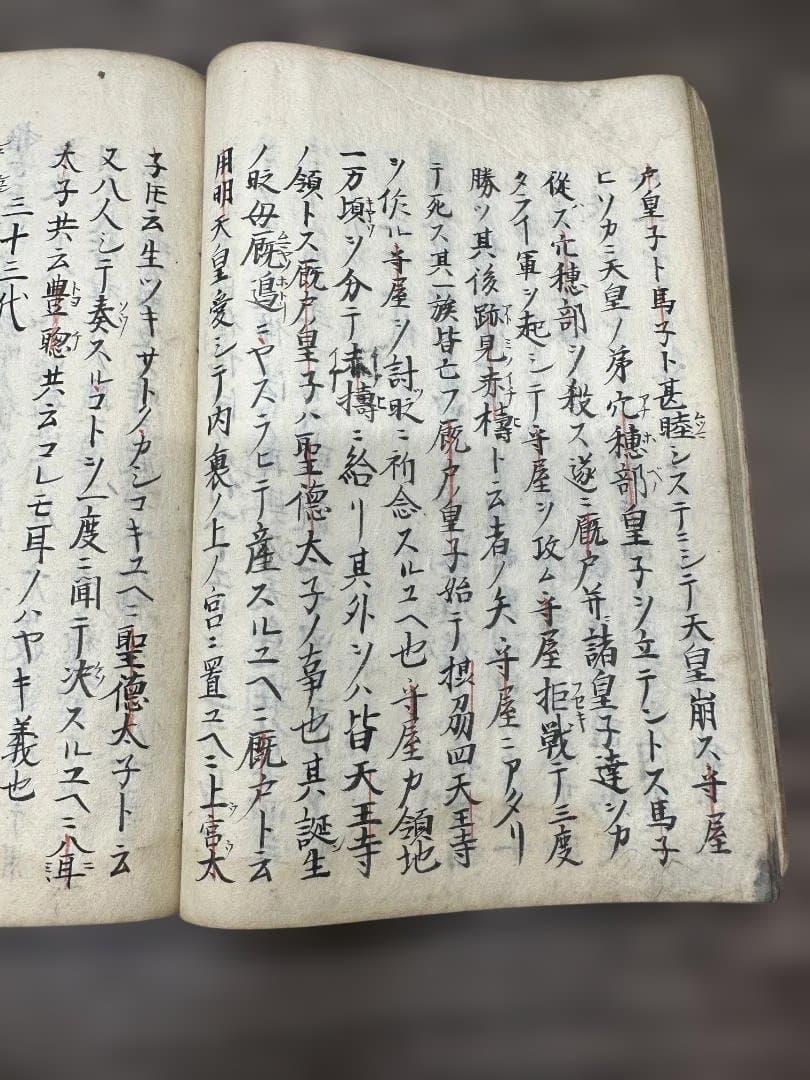 戸皇子ト馬子ト甚睦システニシテ天皇崩ス守屋
ヒソカニ天皇ノ弟穴穂部皇子ヲ立テントス馬子
從ズ穴穂部ヲ殺ス遂ニ厩戸并ニ諸皇子達ヲカ
タライ軍ヲ起シテ守屋ヲ攻ム守屋拒戰テ三度
勝ツ其後跡見赤檮ト云者ノ矢守屋ニアタリ
テ死ス其一族皆亡フ厩戸ノ皇子始テ摂刕四天王寺
ヲ作ル守屋ヲ討時ニ祈念スルユヘ也守屋カ領地
一万頃ヲ分テ赤檮ニ給リ其外ヲハ皆天王寺
ノ領トス厩戸皇子ハ聖德太子ノ事也其誕生
ノ時母厩邉ニヤスラヒテ産スルユヘニ厩戸ト云
用明天皇愛シテ内裏ノ上ノ宮ニ置ユヘニ上宮太
子圧云生ツキサトクカシコキユヘニ聖德太子ト云
又八人シテ奏スルコトヲ一度ニ聞テ决スルユヘニ八耳
太子共云豊聰共云コレモ耳ノハヤキ義也
三十三代